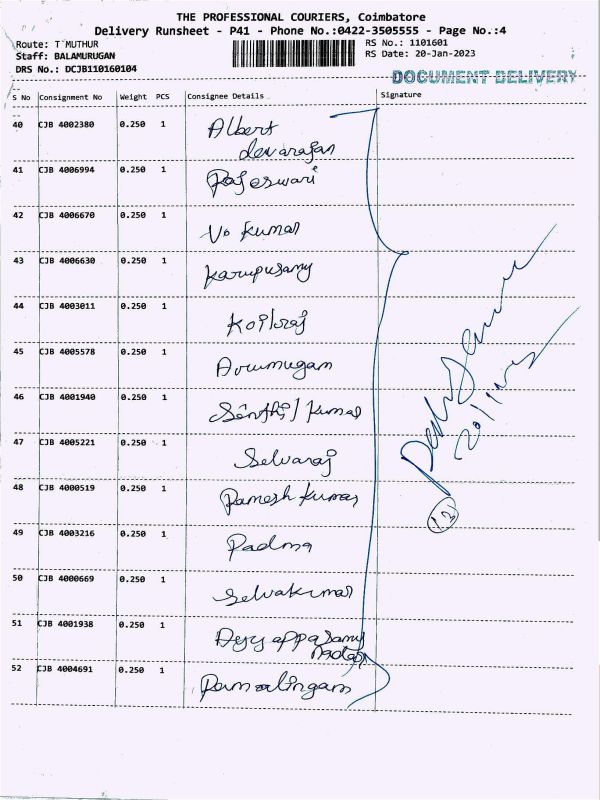 THE PROFESSIONAL COURIERS, Coimbatore
Delivery Runsheet - P41 - Phone No.:0422-3505555 - Page No.:4
Route: T MUTHUR RS No.: 1101601
Staff: BALAMURUGAN RS Date: 20-Jan-2023
DRS No.: DCJB110160104
DOCUMENT DELIVERY
S No Consignment No Weight PCS Consignee Details Signature
40 CJB 4002380 0.250 1 Albert
devarajan
41 CJB 4006994 0.250 1 Rajeswari
42 CJB 4006670 0.250 1 Vo Kumar
43 CJB 4006630 0.250 1 Karupusamy
44 CJB 4003011 0.250 1 Koilraj
45 CJB 4005578 0.250 1 Arumugam
46 CJB 4001940 0.250 1 Senthil Kumar
47 CJB 4005221 0.250 1 Selvaraj
48 CJB 4000519 0.250 1 Ramesh Kumar
49 CJB 4003216 0.250 1 Padma
50 CJB 4000669 0.250 1 Selvakumar
51 CJB 4001938 0.250 1 Ayyappasamy
Nadar
52 CJB 4004691 0.250 1 Ramalingam
13